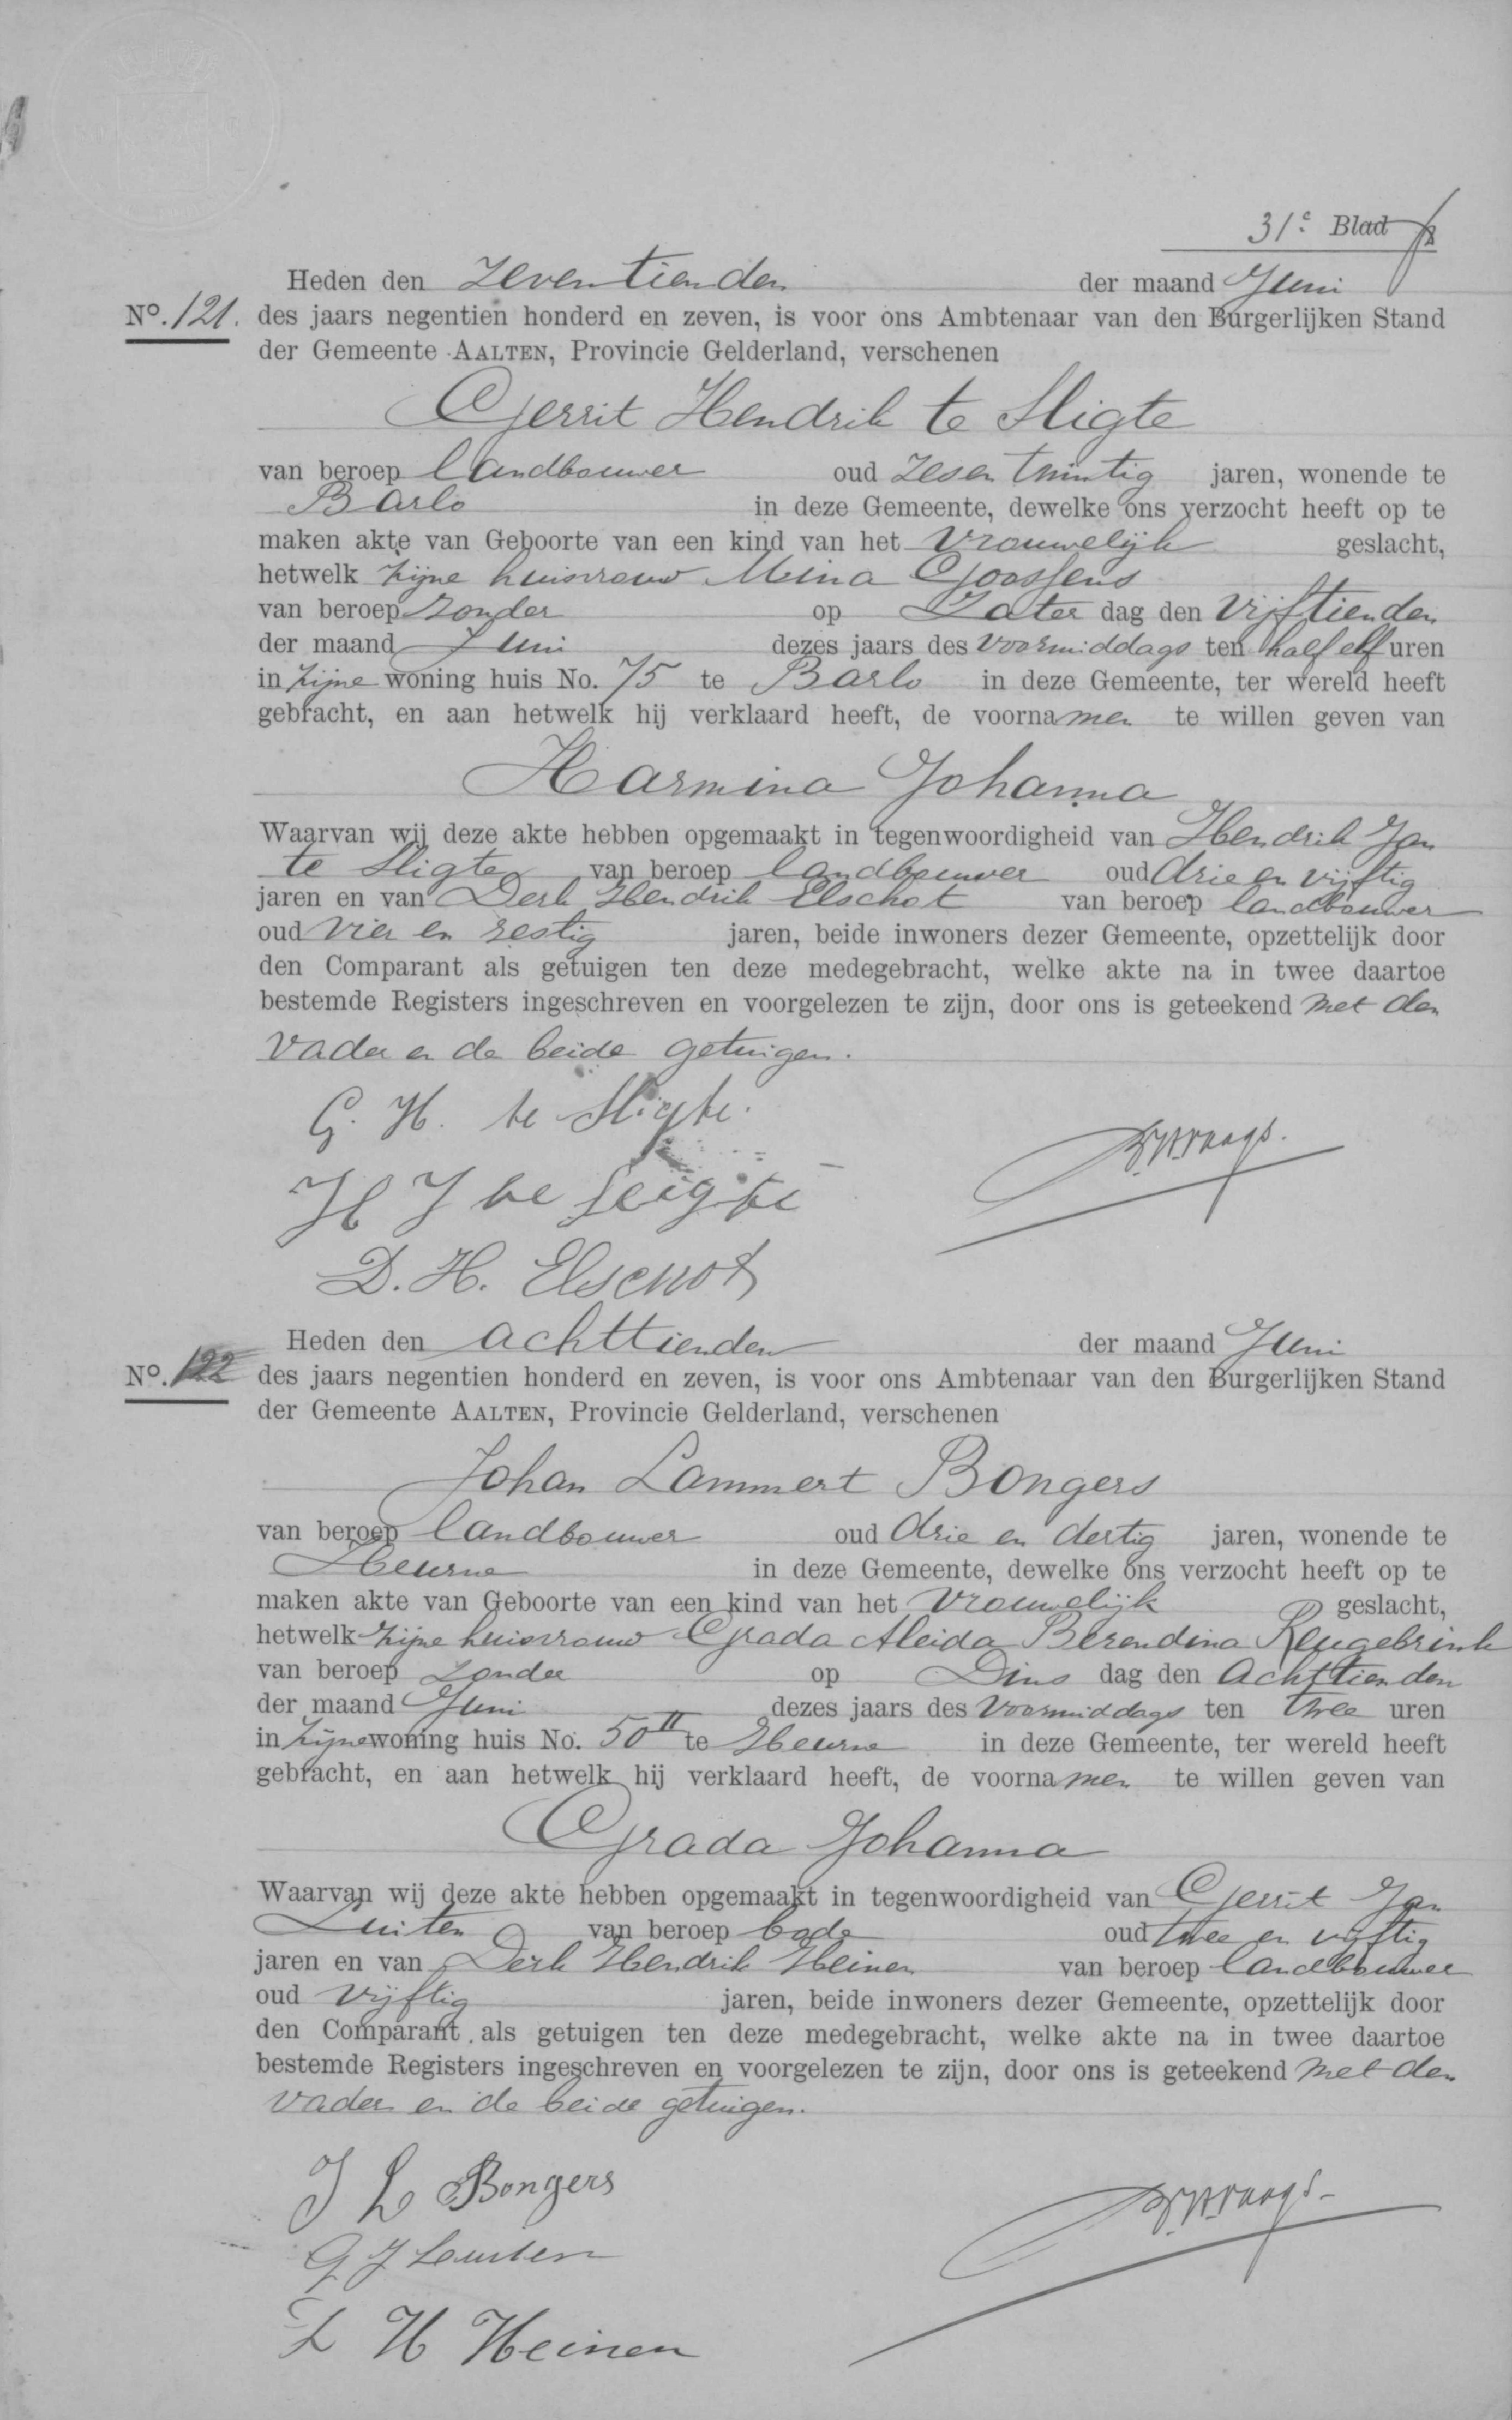 31e Blad
Heden den Zeventienden der maand Juni
No. 121. des jaars negentien honderd en zeven, is voor ons Ambtenaar van den Burgerlijken Stand
der Gemeente AALTEN, Provincie Gelderland, verschenen
Gerrit Hendrik te Sligte
van beroep landbouwer oud zesen twintig jaren, wonende te
Barlo in deze Gemeente, dewelke ons verzocht heeft op te
maken akte van Geboorte van een kind van het Vrouwelijk geslacht,
hetwelk zijne huisvrouw Mina Goossens
van beroep zonder op Zater dag den Vijftienden
der maand Juni dezes jaars des Voormiddags ten half elf uren
in zijne woning huis No. 75 te Barlo in deze Gemeente, ter wereld heeft
gebracht, en aan hetwelk hij verklaard heeft, de voornamen te willen geven van
Harmina Johanna
Waarvan wij deze akte hebben opgemaakt in tegenwoordigheid van Hendrik Jan
te Sligte van beroep landbouwer oud drie en vijftig
jaren en van Derk Hendrik Elschot van beroep landbouwer
oud vier en zestig jaren, beide inwoners dezer Gemeente, opzettelijk door
den Comparant als getuigen ten deze medegebracht, welke akte na in twee daartoe
bestemde Registers ingeschreven en voorgelezen te zijn, door ons is geteekend met den
Vader en de beide getuigen.
G. H. te Sligte.
H J te Sligte
D. H. Elschot
Heden den achttienden der maand Juni
No. 122 des jaars negentien honderd en zeven, is voor ons Ambtenaar van den Burgerlijken Stand
der Gemeente AALTEN, Provincie Gelderland, verschenen
Johan Lammert Bongers
van beroep landbouwer oud drie en dertig jaren, wonende te
Heurne in deze Gemeente, dewelke ons verzocht heeft op te
maken akte van Geboorte van een kind van het Vrouwelijk geslacht,
hetwelk zijne huisvrouw Grada Aleida Berendina Rengebrink
van beroep zonder op Dins dag den Achttienden
der maand Juni dezes jaars des Voormiddags ten twee uren
in zijne woning huis No. 50 II te Heurne in deze Gemeente, ter wereld heeft
gebracht, en aan hetwelk hij verklaard heeft, de voornamen te willen geven van
Grada Johanna
Waarvan wij deze akte hebben opgemaakt in tegenwoordigheid van Gerrit Jan
Luiten van beroep bode oud twee en vijftig
jaren en van Derk Hendrik Heinen van beroep landbouwer
oud Vijftig jaren, beide inwoners dezer Gemeente, opzettelijk door
den Comparant als getuigen ten deze medegebracht, welke akte na in twee daartoe
bestemde Registers ingeschreven en voorgelezen te zijn, door ons is geteekend met den
Vader en de beide getuigen.
J L Bongers
G J Luiten
D H Heinen